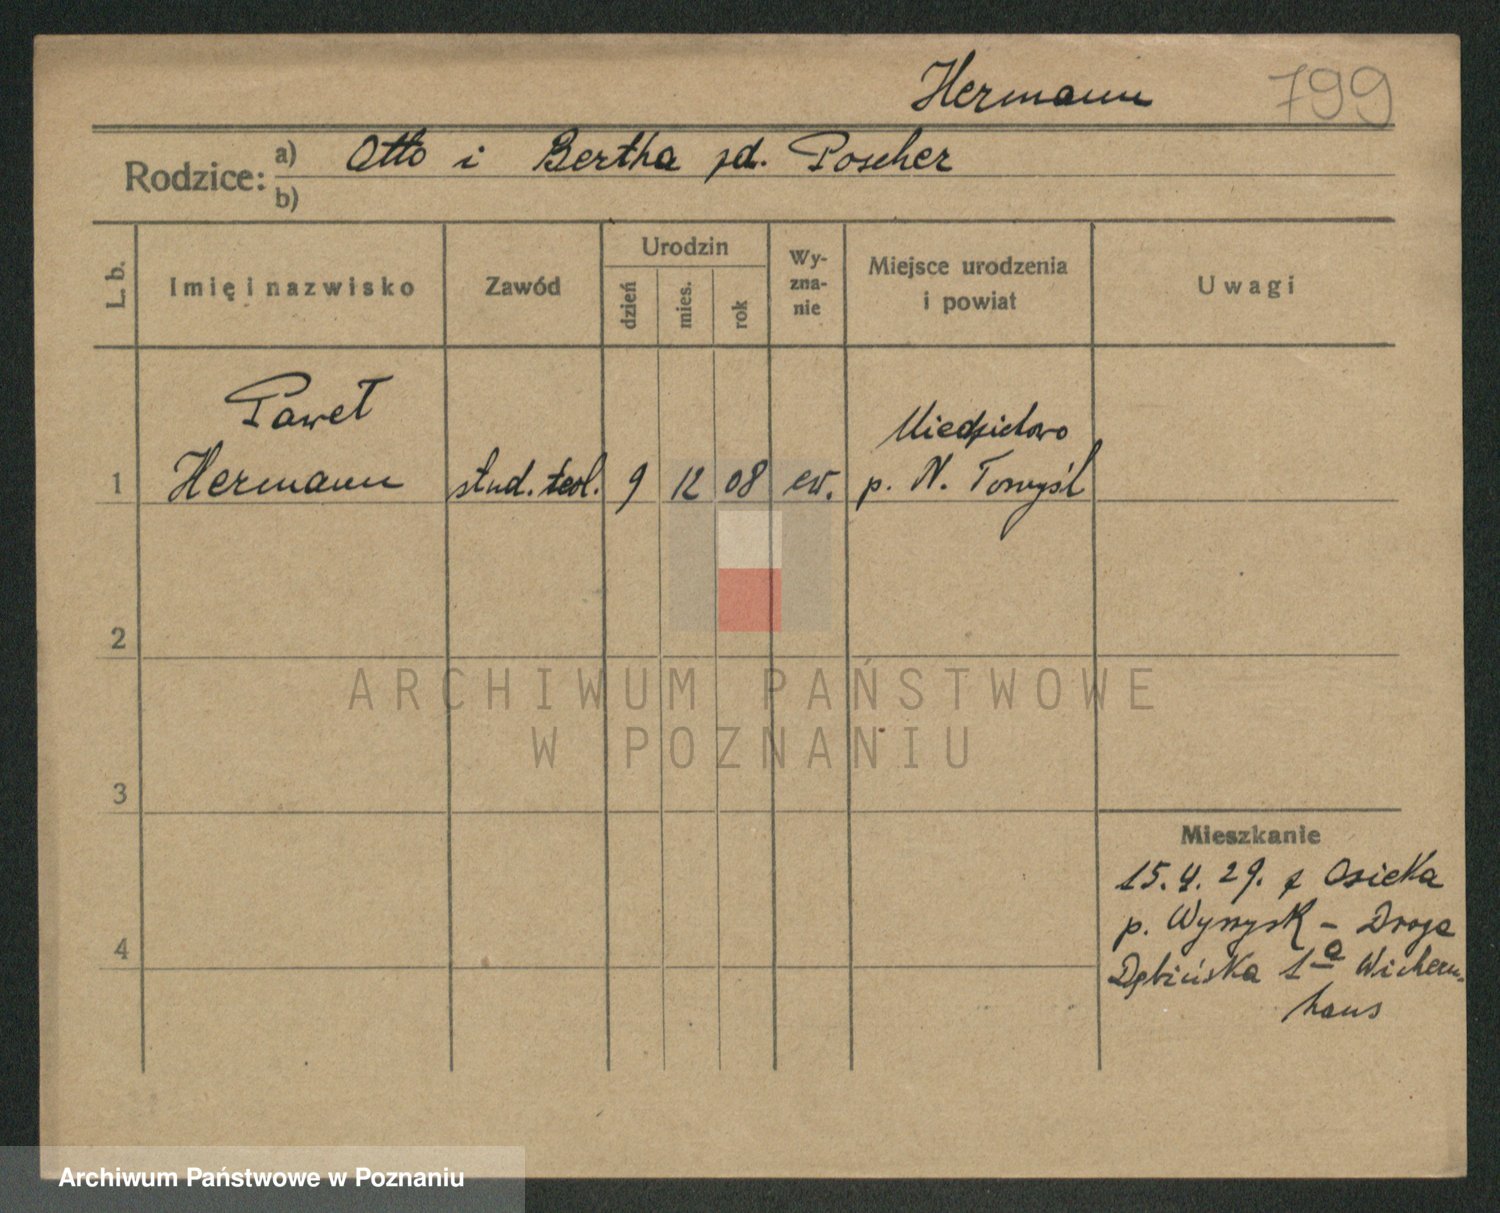 Hermann 799
Rodzice: a) Otto i Bertha zd. Poscher
b)
L. b. Imię i nazwisko Zawód Urodzin dzień mies. rok Wy-zna-nie Miejsce urodzenia i powiat Uwagi
Paweł Miedzichowo
1 Hermann stud. teol. 9 12 08 ew. p. N. Tomyśl
2
ARCHIWUM PAŃSTWOWE
W POZNANIU
3
Mieszkanie
15.4.29. z Osieka
p. Wyrzysk – Droga
4
Dębińska 1a Wichern-
haus
Archiwum Państwowe w Poznaniu